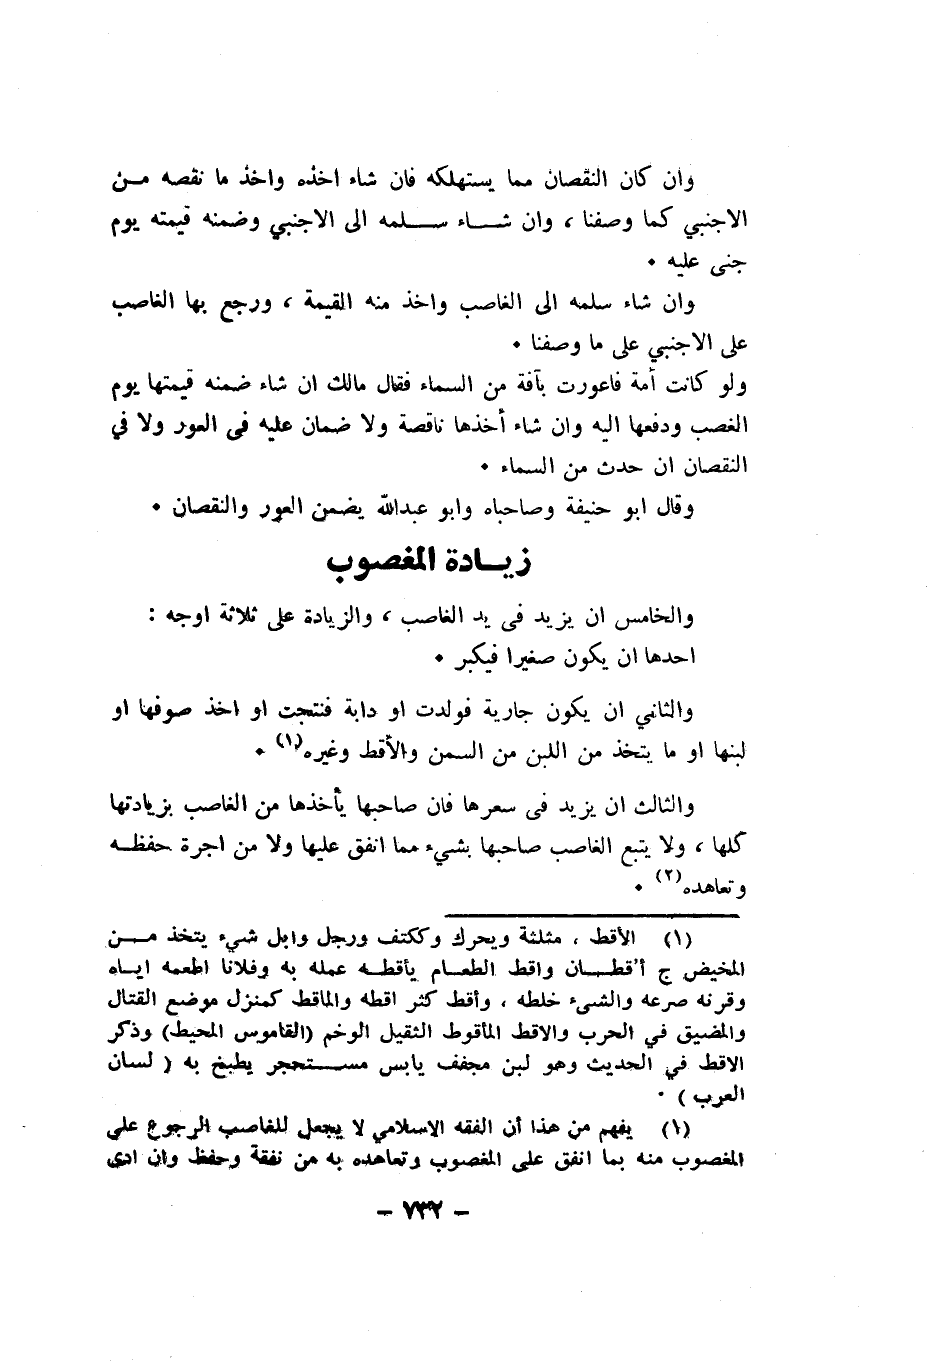 وان كان النقصان مما يستهلكه فان شاء اخذه واخذ ما نقصه مـن
الاجنبي كما وصفنا ، وان شـــاء ســـلمه الى الاجنبي وضمنه قيمته يوم
جنى عليه ٠
وان شاء سلمه الى الغاصب واخذ منه القيمة ، ورجع بها الغاصب
على الاجنبي على ما وصفنا ٠
ولو كانت أمة فاعورت بآفة من السماء فقال مالك ان شاء ضمنه قيمتها يوم
الغصب ودفعها اليه وان شاء أخذها ناقصة ولا ضمان عليه فى العور ولا في
النقصان ان حدث من السماء ٠
وقال ابو حنيفة وصاحباه وابو عبدالله يضمن العور والنقصان ٠
زيـــادة المغصوب
والخامس ان يزيد فى يد الغاصب ، والزيادة على ثلاثة اوجه :
احدها ان يكون صغيرا فيكبر ٠
والثاني ان يكون جارية فولدت او دابة فنتجت او اخذ صوفها او
لبنها او ما يتخذ من اللبن من السمن والأقط وغيره(١) ٠
والثالث ان يزيد فى سعرها فان صاحبها يأخذها من الغاصب بزيادتها
كلها ، ولا يتبع الغاصب صاحبها بشيء مما انفق عليها ولا من اجرة حفظـه
وتعاهده(٢) ٠
(١) الأقط ، مثلثة ويحرك وككتف ورجل وابل شيء يتخذ مـــن
المخيض ج أقطـــان واقط الطعـــام يأقطـه عمله به وفلانا اطعمه ايـاه
وقرنه صرعه والشيء خلطه ، وأقط كثر اقطه والماقط كمنزل موضع القتال
والمضيق في الحرب والاقط المأقوط الثقيل الوخم (القاموس المحيط) وذكر
الاقط في الحديث وهو لبن مجفف يابس مســـتحجر يطبخ به ( لسان
العرب ) ٠
(١) يفهم من هذا أن الفقه الاسلامي لا يجعل للغاصب الرجوع على
المغصوب منه بما انفق على المغصوب وتعاهده به من نفقة وحفظ وان ادى
– ٧٣٢ –